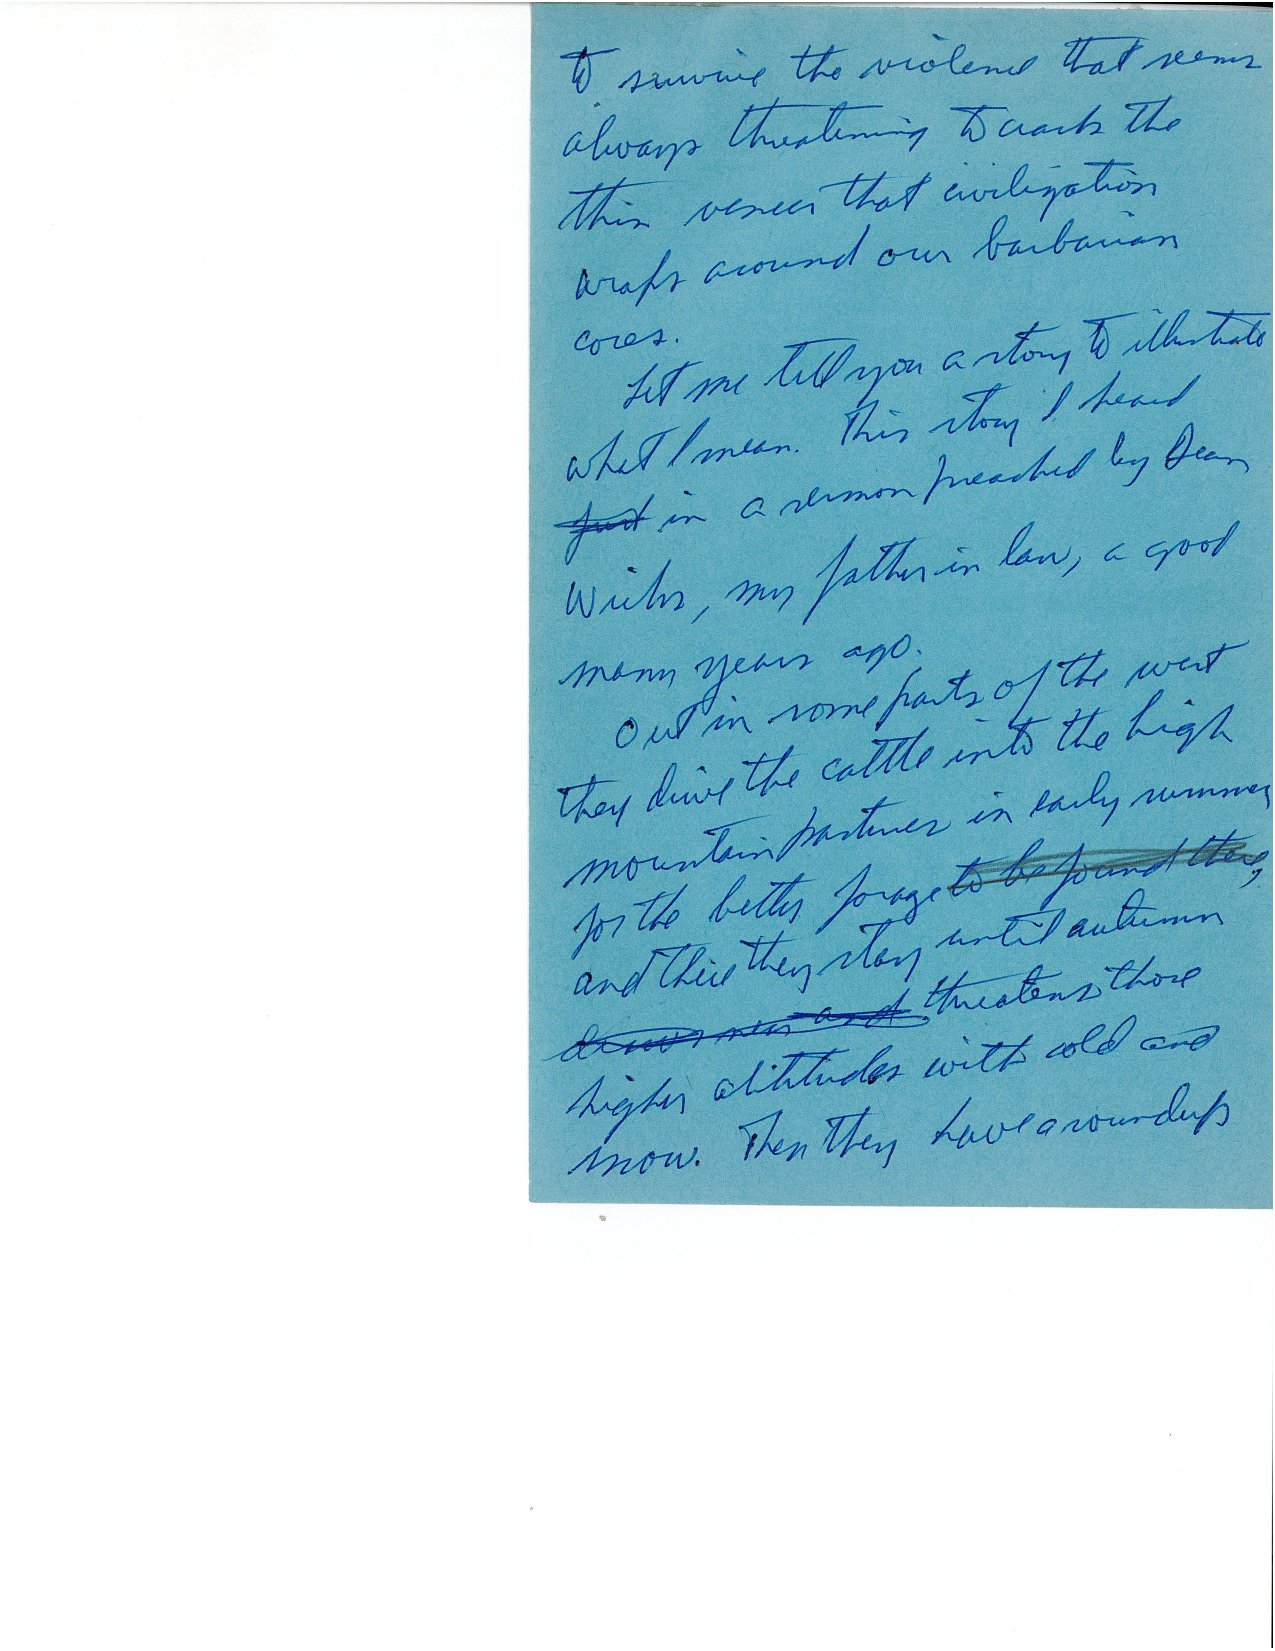 to survive the violence that seems
always threatening to crack the
thin veneer that civilization
wraps around our barbarian
cores.
Let me tell you a story to illustrate
what I mean. This story I heard
first in a sermon preached by Dean
Wicks, my father in law, a good
many years ago.
Out in some parts of the west
they drive the cattle into the high
mountain pastures in early summer
for the better forage to be found there,
and there they stay until autumn
draws near and threatens those
higher altitudes with cold and
snow. Then they have a roundup